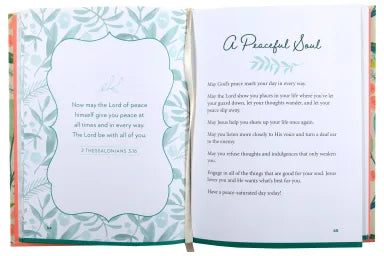 Now may the Lord of peace
himself give you peace
at all times and in every way.
The Lord be with all of you.
2 THESSALONIANS 3:16
A Peaceful Soul
May God's peace mark your day in every way.
May the Lord show you places in your life where you've let
your guard down, let your thoughts wander, and let your
peace slip away.
May Jesus help you shore up your life once again.
May you listen more closely to His voice and turn a deaf ear
to the enemy.
May you refuse thoughts and indulgences that only weaken
you.
Engage in all of the things that are good for your soul. Jesus
loves you and He wants what's best for you.
Have a peace-saturated day today!